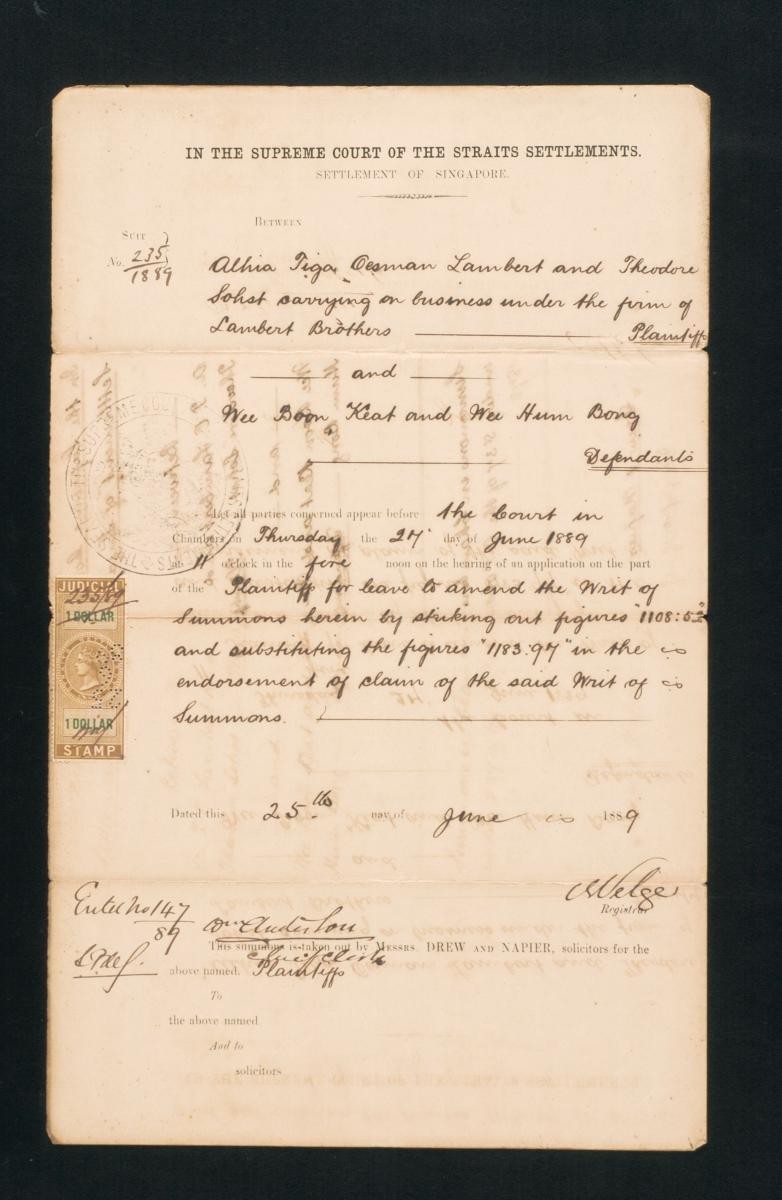 IN THE SUPREME COURT OF THE STRAITS SETTLEMENTS.
SETTLEMENT OF SINGAPORE.
BETWEEN
SUIT
No. 235/1889
Tiga Oesman Lambert and Theodore
Sohst carrying on business under the firm of
Lambert Brothers Plaintiffs
and
Wee Boon Keat and Wee Hum Bong
Defendants
Let all parties concerned appear before the Court in
Chambers on Thursday the 27 day of June 1889
at 11 o'clock in the fore noon on the hearing of an application on the part
of the Plaintiff for leave to amend the Writ of
Summons herein by striking out figures "1108:52"
and substituting the figures "1183.97" in the
endorsement of claim of the said Writ of
Summons.
JUDICIAL
235/89
1 DOLLAR
1 DOLLAR
STAMP
Dated this 25th day of June 1889
Registrar
Entd No 147/89
Anderson
This summons is taken out by MESSRS. DREW AND NAPIER, solicitors for the
Chief Clerk
above named. Plaintiffs
To
the above named
And to
solicitors